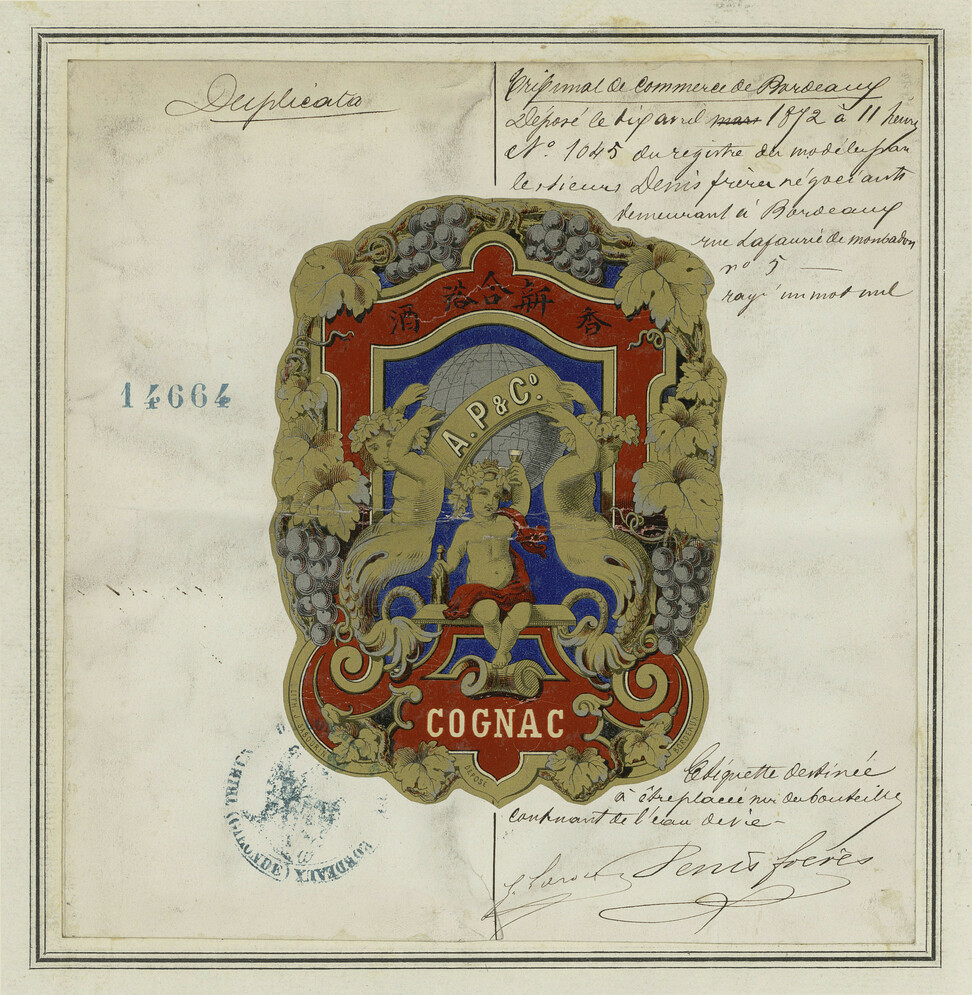 Duplicata
Tribunal de Commerce de Bordeaux
Déposé le dix avril mars 1872 à 11 heures
No. 1045 du registre des modèles par
les sieurs Denis frères négociants
demeurant à Bordeaux
rue Lafaurie de monbadon
no 5 —
rayé un mot nul
酒 合新香
14664
A.P & Co.
COGNAC
DEPOSÉ
BORDEAUX
Etiquette destinée
à être placée sur des bouteilles
contenant de l'eau de vie -
Denis frères
(GIRONDE)
BORDEAUX